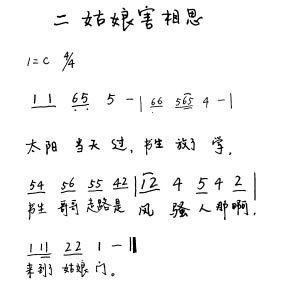 二 姑娘害相思
1=C 4/4
1 1 65 5 - | 66 565 4 - |
太阳 当天 过，书生 放了 学，
54 56 55 42 | 12 4 5 4 2 |
书生 哥哥 走路是 风 骚 人那啊，
1 11 22 1 - ‖
来到了 姑娘 门。